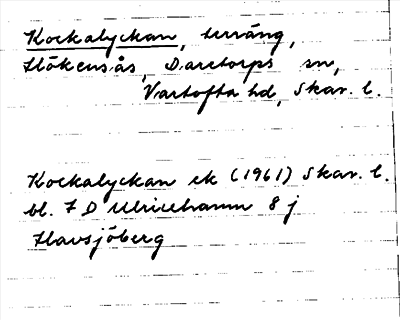 Kockalyckan, terräng,
Hökensås, Daretorps sn,
Vartofta hd, Skar. l.
Kockalyckan ek (1961) Skar. l.
bl. 7 D Ulricehamn 8 j
Havsjöberg